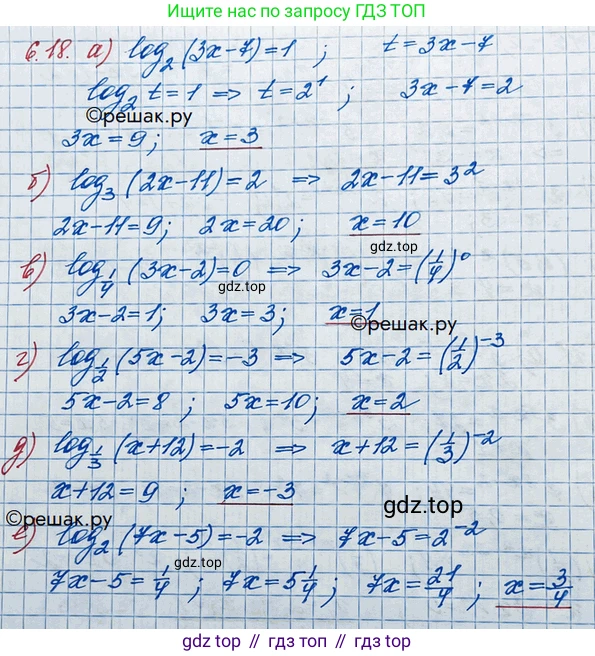 Ищите нас по запросу ГДЗ ТОП
6.18. а) log₂(3x-7)=1 ; t=3x-7
log₂ t=1 => t=2¹ ; 3x-7=2
©решак.ру
3x=9; x=3
б) log₃(2x-11)=2 => 2x-11=3²
2x-11=9; 2x=20; x=10
gdz.top
в) log_{1/4}(3x-2)=0 => 3x-2=(1/4)⁰
gdz.top
3x-2=1; 3x=3; x=1
©решак.ру
г) log_{1/2}(5x-2)=-3 => 5x-2=(1/2)⁻³
5x-2=8 ; 5x=10; x=2
д) log_{1/3}(x+12)=-2 => x+12=(1/3)⁻²
x+12=9 ; x=-3
gdz.top
©решак.ру
е) log₂(7x-5)=-2 => 7x-5=2⁻²
gdz.top
7x-5=1/4 ; 7x=5 1/4 ; 7x=21/4 ; x=3/4
gdz.top // гдз.топ // gdz.top